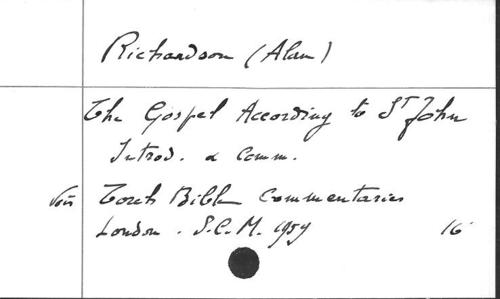 Richardson (Alan)
The Gospel According to St John
Introd. & Comm.
Voir Torch Bible Commentaries
London. S.C.M. 1959 16